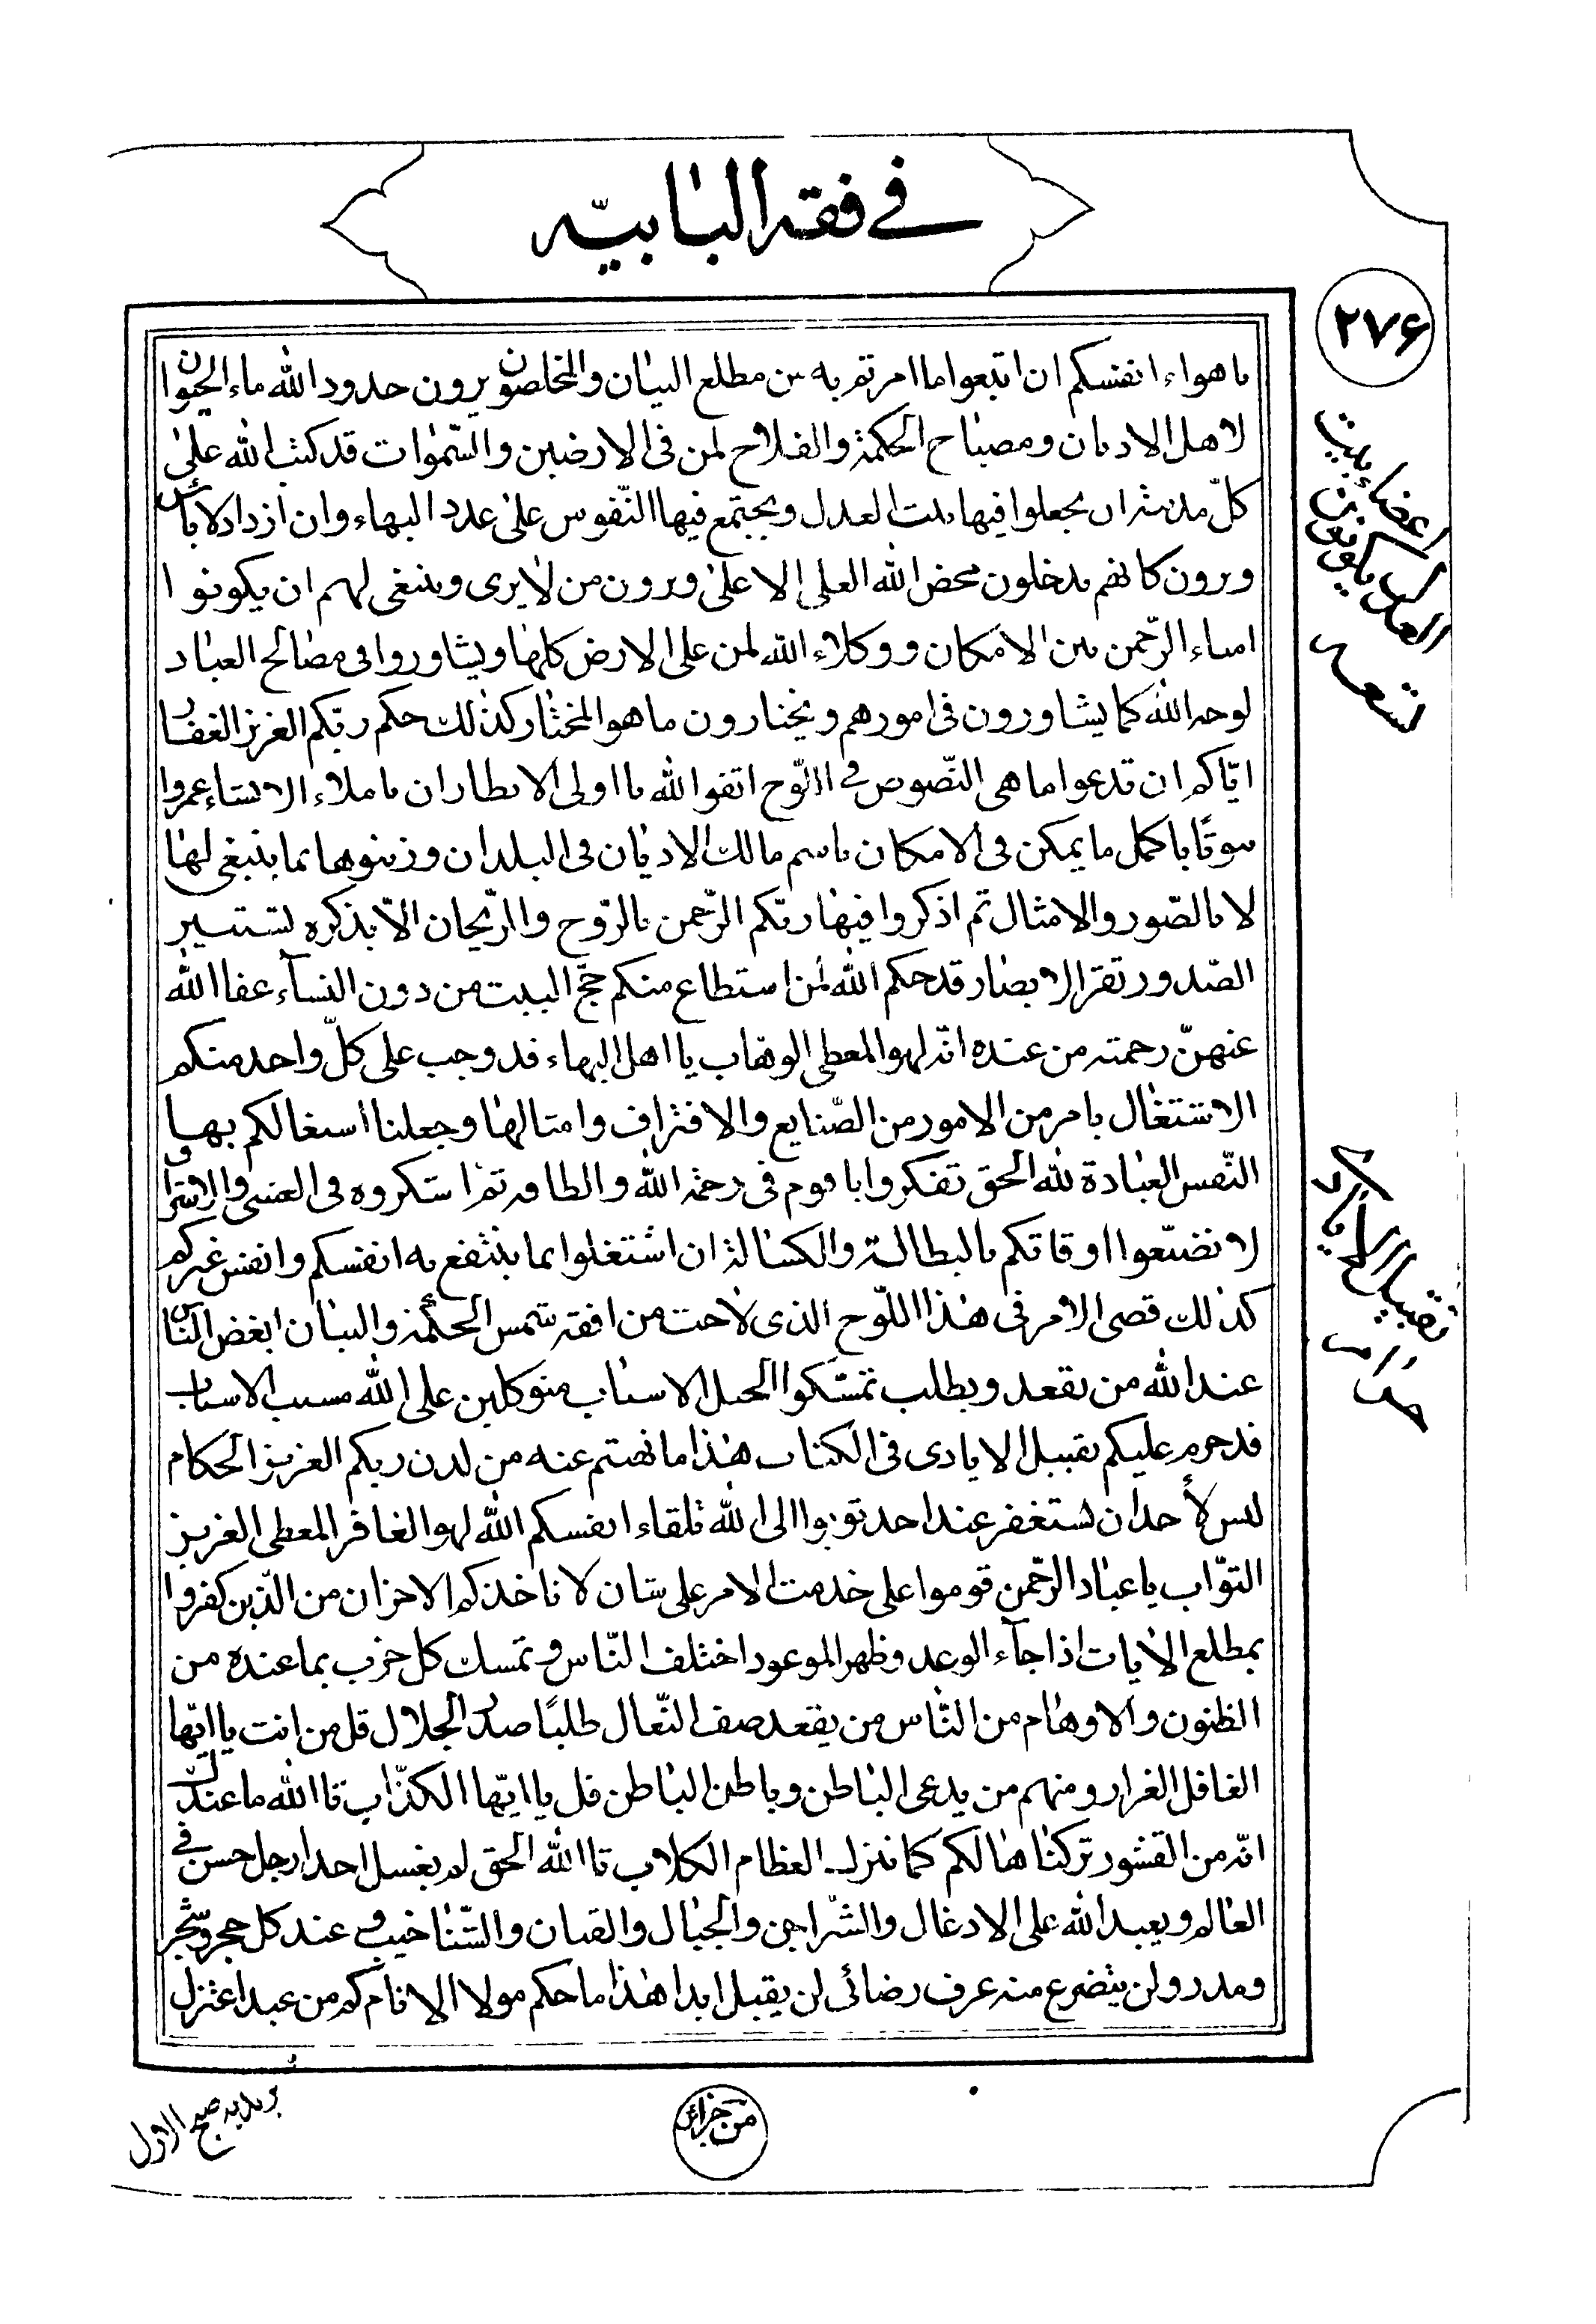 في فقه البابيّه
٢٧۶
ماهواء انفسكم ان اتبعوا ما امرتم به من مطلع البيان والمخلصون يرون حدود الله ماء الحيوان
لاهل الاديان ومصباح الحكمة والفلاح لمن في الارضين والسّموات قد كتب الله على
كلّ مدينة ان يجعلوا فيها بيت العدل ويجتمع فيها النّفوس على عدد البهاء وان ازداد لا بأس
ويرون كانهم يدخلون محضر الله العلي الاعلى ويرون من لا يرى وينبغي لهم ان يكونوا
امناء الرّحمن بين الامكان ووكلاء الله لمن على الارض كلها ويشاوروا في مصالح العباد
لوجه الله كما يشاورون في امورهم ويختارون ما هو المختار كذلك حكم ربّكم العزيز الغفار
ايّاكم ان تدعوا ما هي النّصوص في اللّوح اتقوا الله يا اولى الانظار ان يا ملاء الانشاء عمروا
بيوتًا باكمل ما يمكن في الامكان باسم مالك الاديان في البلدان وزينوها بما ينبغي لها
لا بالصّور والامثال ثم اذكروا فيها ربّكم الرّحمن بالرّوح والرّيحان الّا بذكره تستنير
الصّدور تقر الابصار قد حكم الله لمن استطاع منكم حجّ البيت من دون النسآء عفا الله
عنهنّ رحمته من عنده انّه لهو المعطي الوهاب يا اهل البهاء قد وجب على كلّ واحد منكم
الاشتغال بامر من الامور من الصّنايع والاقتراف وامثالها وجعلنا اشغالكم بها
النّفس العبادة لله الحق تفكروا يا قوم في رحمة الله والطافه ثم اشكروه في العشي والاشراق
لا تضيّعوا اوقاتكم بالبطالة والكسالة ان اشتغلوا بما ينتفع به انفسكم وانفس غيركم
كذلك قضى الامر في هذا اللّوح الذي لاحت من افقه شمس الحكمة والبيان ابغض النّاس
عند الله من يقعد ويطلب تمسّكوا الحبل الاسباب متوكلين على الله مسبب الاسباب
قد حرم عليكم تقبيل الايادي في الكتاب هذا ما نهيتم عنه من لدن ربكم العزيز الحكام
ليس لأحد ان يستغفر عند احد توبوا الى الله تلقاء انفسكم الله لهو الغافر المعطي العزيز
التوّاب يا عباد الرّحمن قوموا على خدمة الامر على شان لا تاخذكم الاحزان من الّذين كفروا
بمطلع الايات اذا جآء الوعد وظهر الموعود اختلف النّاس وتمسك كل حزب بما عنده من
الظنون والاوهام من النّاس من يقعد صف النّعال طلبًا صدر الجلال قل من انت يا ايّها
الغافل الغرار ومنهم من يدعى الباطن وباطن الباطن قل يا ايّها الكذّاب تا الله ما عندك
انّه من القشور تركناها لكم كما نترك العظام الكلاب تا الله الحق لو يغسل احد ارجل حسن في
العالم ويعبد الله على الادغال والشّراجن والجبال والقنان والشّناخيب وعند كل حجر وشجر
ومدر ولن يتضوع منه عرف رضائي لن يقبل ابدا هذا ما حكم مولا الانام كم من عبد اعتزل
اعضاء بيت
العدل يكونون
تسعه
تقبيل الايادي
حرام